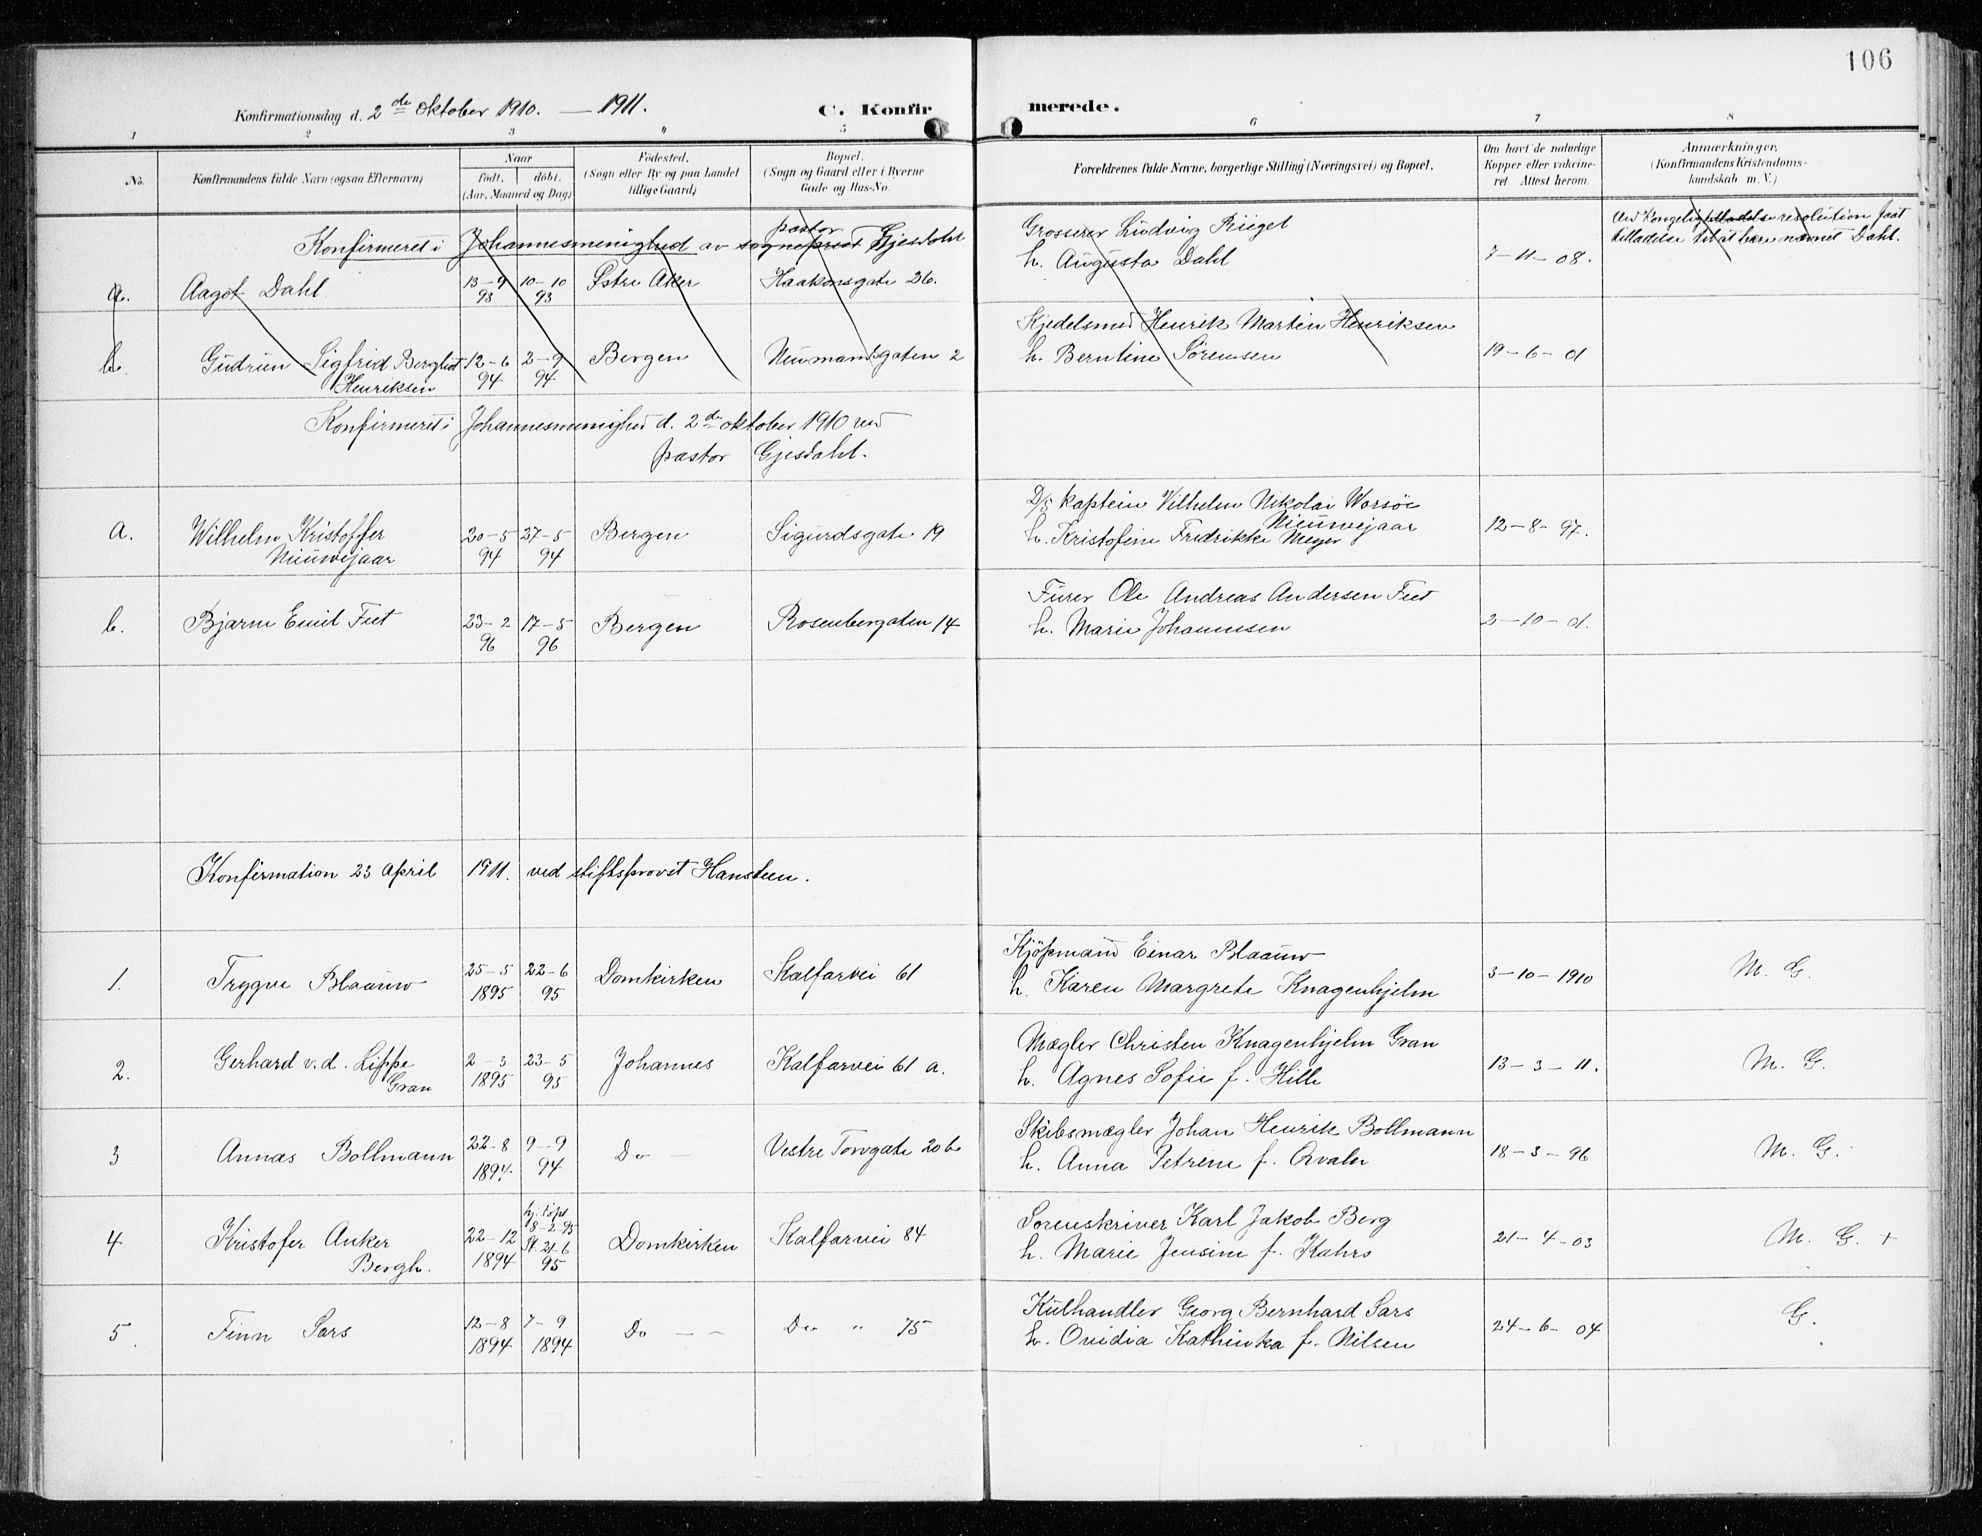 106
Konfirmationsdag d. 2de oktober 1910. — 1911. C. Konfirmerede.
1 2 3 4 5 6 7 8
No. Konfirmandens fulde Navn (ogsaa Efternavn) Naar født, døbt. (Aar, Maaned og Dag) Fødested. (Sogn eller By og paa Landet tillige Gaard) Bopæl. (Sogn og Gaard eller i Byerne Gade og Hus-No. Forældrenes fulde Navne, borgerlige Stilling (Næringsvei) og Bopæl. Om havt de naturlige Kopper eller vakcineret. Attest herom. Anmærkninger. (Konfirmandens Kristendomskundskab m. V.)
Konfirmeret i Johannesmenighed av sogneprest pastor Gjesdahl
a. Aagot Dahl 13-9 93 10-10 93 Østre Aker Haakonsgate 26.
Grosserer Ludvig Rieget
h. Augusta Dahl 7-11-08.
Ved Kongelig tilladelse resolution faat
tilladelse til at bære navnet Dahl.
b. Gudrun Sigfrid Bergliot Henriksen 12-6 94 2-9 94 Bergen Neumandsgaten 2
Kjedelsmed Henrik Martin Henriksen
h. Berntine Sørensen 19-6-01
Konfirmeret i Johannesmenighed d. 2de oktober 1910 ved
pastor Gjesdahl.
a. Wilhelm Kristoffer Nieuwejaar 20-5 94 27-5 94 Bergen Sigurdsgate 19
D/S kaptein Vilhelm Nikolai Worsöe Nieuwejaar
h. Kristofine Fredrikke Meyer 12-8-97.
b. Bjarne Emil Feet 23-2 96 17-5 96 Bergen Rosenbergaten 14
Furer Ole Andreas Andersen Feet
h. Marie Johannesen 2-10-01.
Konfirmation 23 April 1911. ved stiftsprovst Hansteen.
1. Trygve Blaauw 25-5 1895 22-6 95 Domkirken Kalfarvei 61
Kjöpmand Einar Blaauw
h. Karen Margrete Knagenhjelm 3-10-1910 M. G.
2. Gerhard v. d. Lippe Gran 2-3 1895 23-5 95 Johannes Kalfarvei 61 a.
Mægler Christen Knagenhjelm Gran
h. Agnes Sofie f. Hille 13-3-11. M. G.
3 Annas Bollmann 22-8 1894. 9-9 94 Do — Vestre Torvgate 20 b
Skibsmægler Johan Henrik Bollmann
h. Anna Petrine f. Qvaln 18-3-96 M. G.
4 Kristofer Anker Bergh. 22-12 1894 hj. döpt 8-2 95 St. 21-6 95 Domkirken Kalfarvei 84
Sorenskriver Karl Jakob Berg
h. Marie Jensine f. Kahrs 21-4-03 M. G. +
5. Finn Sars 12-8 1894 7-9 1894 Do — — Do " 75
Kulhandler Georg Bernhard Sars
h. Ovidia Kathinka f. Nilsen 24-6-04 G.